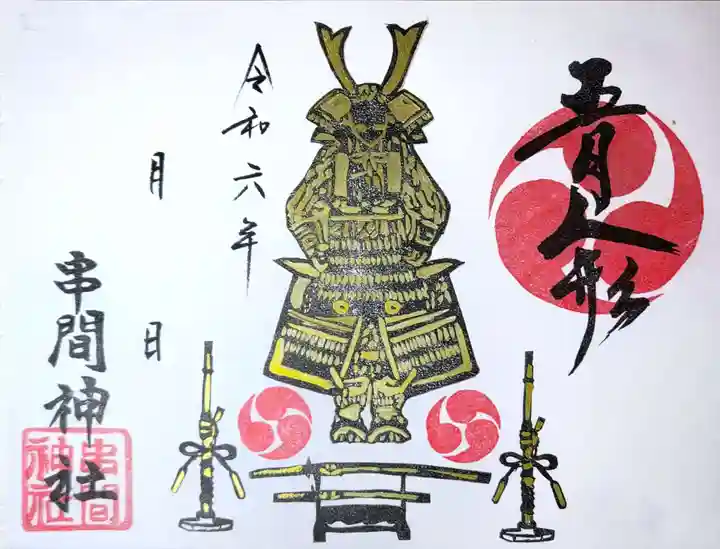 五月人形
令和六年
月 日
串間神社
串間神社